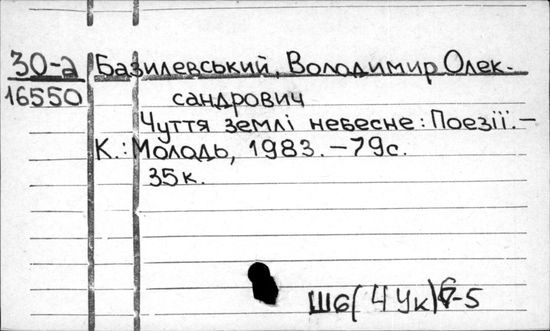 30-а Базилевський, Володимир Олек-
16550 сандрович
Чуття землі небесне: Поезії. –
К.: Молодь, 1983. – 79с.
35к.
Ш6(4Ук)6-5